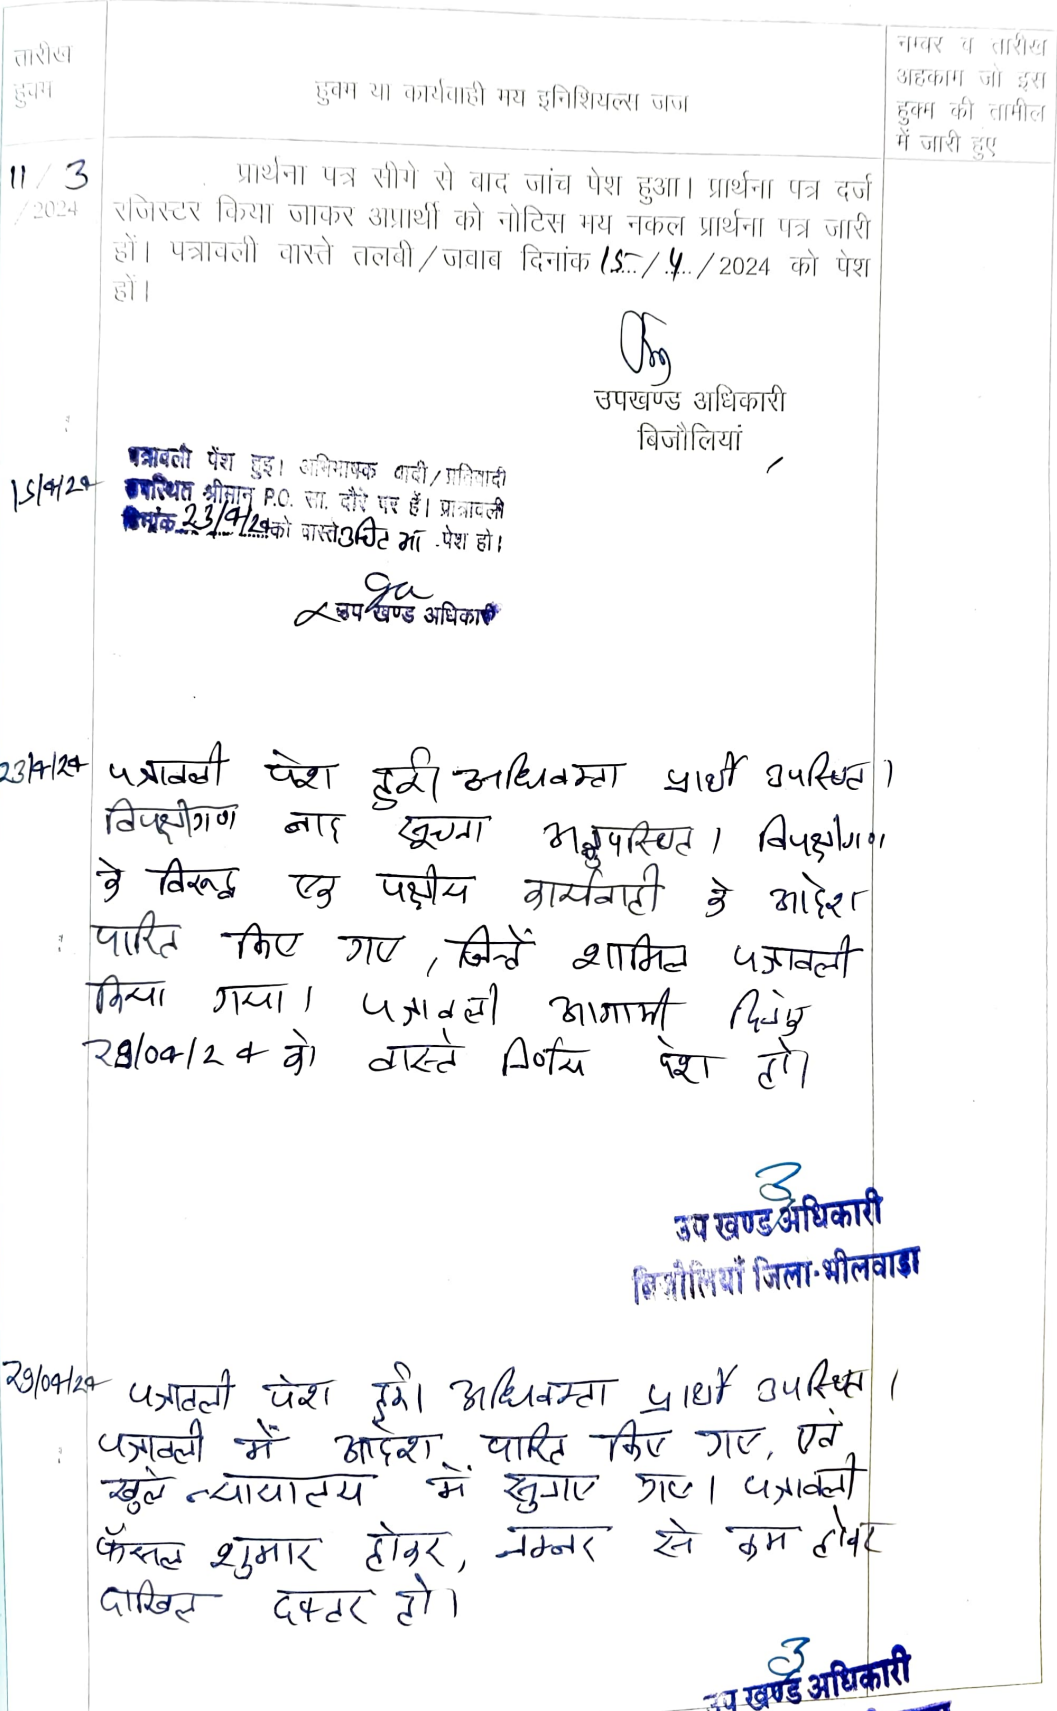 तारीख
हुक्म
हुक्म या कार्यवाही मय इनिशियल्स जज
नम्बर व तारीख
अहकाम जो इस
हुक्म की तामील
में जारी हुए
11/3
/2024
प्रार्थना पत्र सीगे से वाद जांच पेश हुआ। प्रार्थना पत्र दर्ज
रजिस्टर किया जाकर अप्रार्थी को नोटिस मय नकल प्रार्थना पत्र जारी
हों। पत्रावली वास्ते तलवी/जवाब दिनांक 15/4/2024 को पेश
हों।
उपखण्ड अधिकारी
बिजौलियां
15/4/24
पत्रावली पेंश हुइ। अभिभाषक वादी/प्रतिवादी
उपस्थित श्रीमान् P.O. सा. दौरे पर हैं। प्रात्रावली
दिनांक 23/4/24 को वास्ते उचित मा पेश हो।
उप खण्ड अधिकारी
23/4/24
पत्रावली पेश हुई। अधिवक्ता प्रार्थी उपस्थित।
विपक्षीगण बाद सूचना अनुपस्थित। विपक्षीगण
के विरूद्ध एक पक्षीय कार्यवाही के आदेश
पारित किए गए, जिन्हें शामिल पत्रावली
किया गया। पत्रावली आगामी दिनांक
29/04/24 को वास्ते निर्णय पेश हो।
उप खण्ड अधिकारी
बिजौलियाँ जिला-भीलवाडा
29/04/24
पत्रावली पेश हुई। अधिवक्ता प्रार्थी उपस्थित।
पत्रावली में आदेश पारित किए गए, एवं
खुले न्यायालय में सुनाए गए। पत्रावली
फैसल शुमार होकर, नम्बर से कम होकर
दाखिल दफ्तर हो।
उप खण्ड अधिकारी